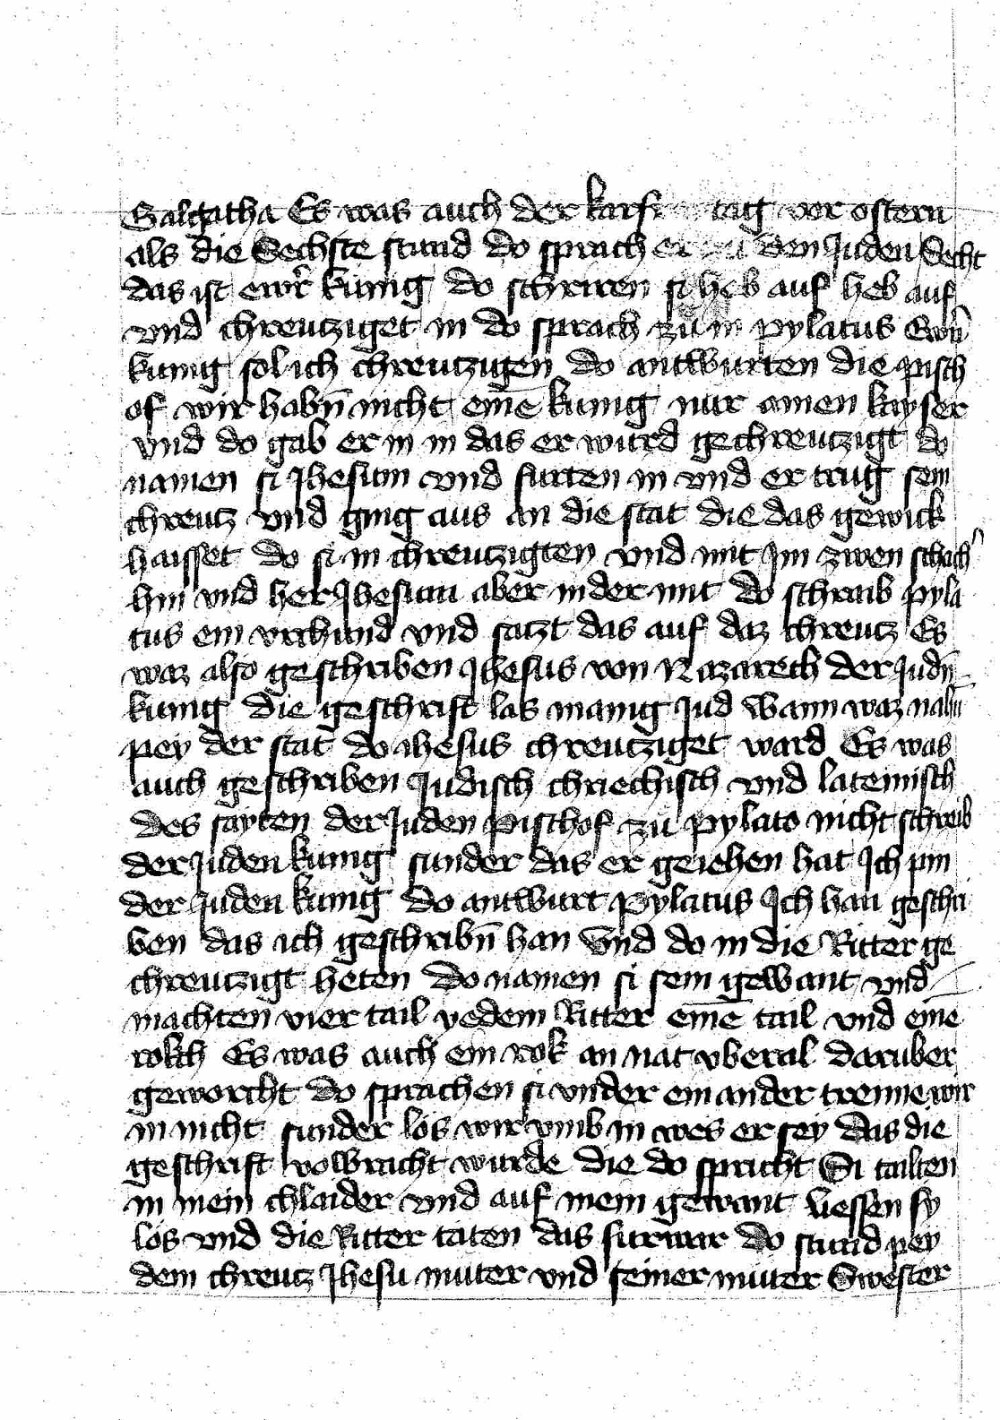 Galgatha Es was auch der karf tag vor ostern
als die Sechste stund do sprach er den Juden Secht
das ist ewr̃ kunig do schriren si heb auf heb auf
vnd chreutziget in do sprach zu in pylatus Ewrñ
kunig sol ich chreutzigen do antwurten die pisch
of wir habñ nicht eine͂ kunig nur ainen kayser
vnd do gab er in in das er wurd gechreutzigt do
namen si Jhesum vnd furten in vnd er trug sein
chreutz vnd ging aus an die stat die das gewick
haisset do si in chreutzigten vnd mit Im zwen schach
hin vnd her Jhesum aber in der mit do schraib pyla
tus ein vrchund vnd satzt das auf daz chreutz Es
waz also geschriben Jhesus von Nazareth der Judñ
kunig die geschrift las manig Jud wann waz nahn
pey der stat do Jhesus chreutziget ward Es was
auch geschriben Judisch chriechisch vnd lateinisch
des sayten der Juden pischof zu pylato nicht schreib
der Juden kunig sunder das er geiehen hat Ich pin
der Juden kunig do antwurt pylatus Ich han geschri
ben das ich geschribñ han Vnd do in die Ritter ge
chreutzigt heten Do namen si sein gewant vnd
machten vier tail yedem Ritter eine͂ tail vnd eine
rokch Es was auch ein rok an nat vberal daruber
geworcht do sprachen si vnder ein ander trenne wir
in nicht sunder los wir vmb in wes er sey Das die
geschrift volbracht wurde die do spricht Si tailten
in mein chlaider vnd auf mein gewant liessen sy
los vnd die Ritter taten das furwar do stund pey
dem chreutz Jhesu muter vnd seiner muter Swester